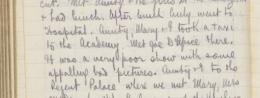 out. Met Aunty & the girls at the
& had lunch. After lunch Lucy went to
Hospital. Aunty, Mary & I took a taxi
to the Academy. Met Joe D there.
It was a very poor show with some
appalling bad pictures. Aunty & I to the
Regent Palace where we met Mary, Mrs